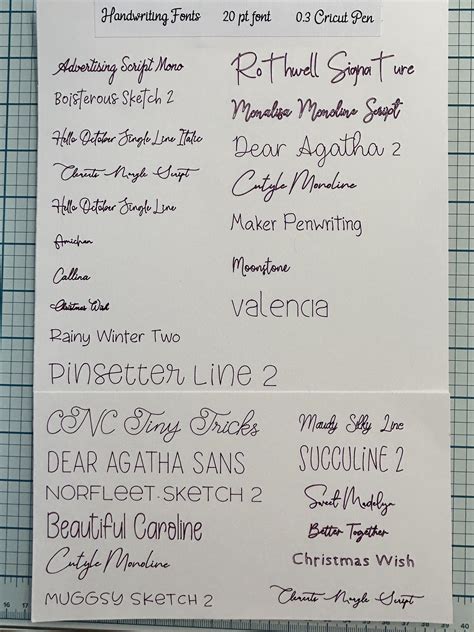 Handwriting Fonts 20 pt font 0.3 Cricut Pen
Advertising Script Mono
Boisterous Sketch 2
Hello October Single Line Italic
Clements Nargle Script
Hello October Single Line
Amichan
Callina
Christmas Wish
Rainy Winter Two
Pinsetter Line 2
Rothwell Signature
Monalisa Monoline Script
Dear Agatha 2
Cutyle Monoline
Maker Penwriting
Moonstone
valencia
CNC Tiny Tricks
DEAR AGATHA SANS
NORFLEET SKETCH 2
Beautiful Caroline
Cutyle Monoline
MUGGSY SKETCH 2
Maudy Silky Line
SUCCULINE 2
Sweet Madelyn
Better Together
Christmas Wish
Clements Nargle Script
16 17
35 36 37 38 39 40